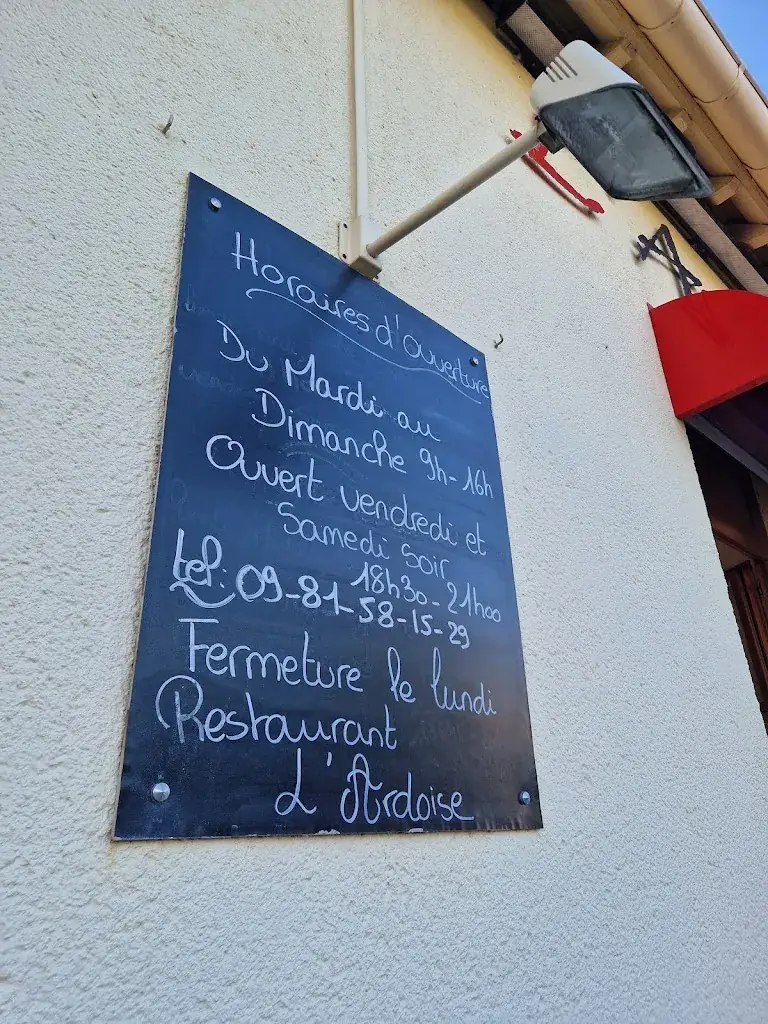 Horaires d'ouverture
Du Mardi au
Dimanche 9h-16h
Ouvert vendredi et
Samedi soir
18h30-21h00
tel: 09-81-58-15-29
Fermeture le lundi
Restaurant
L'Ardoise